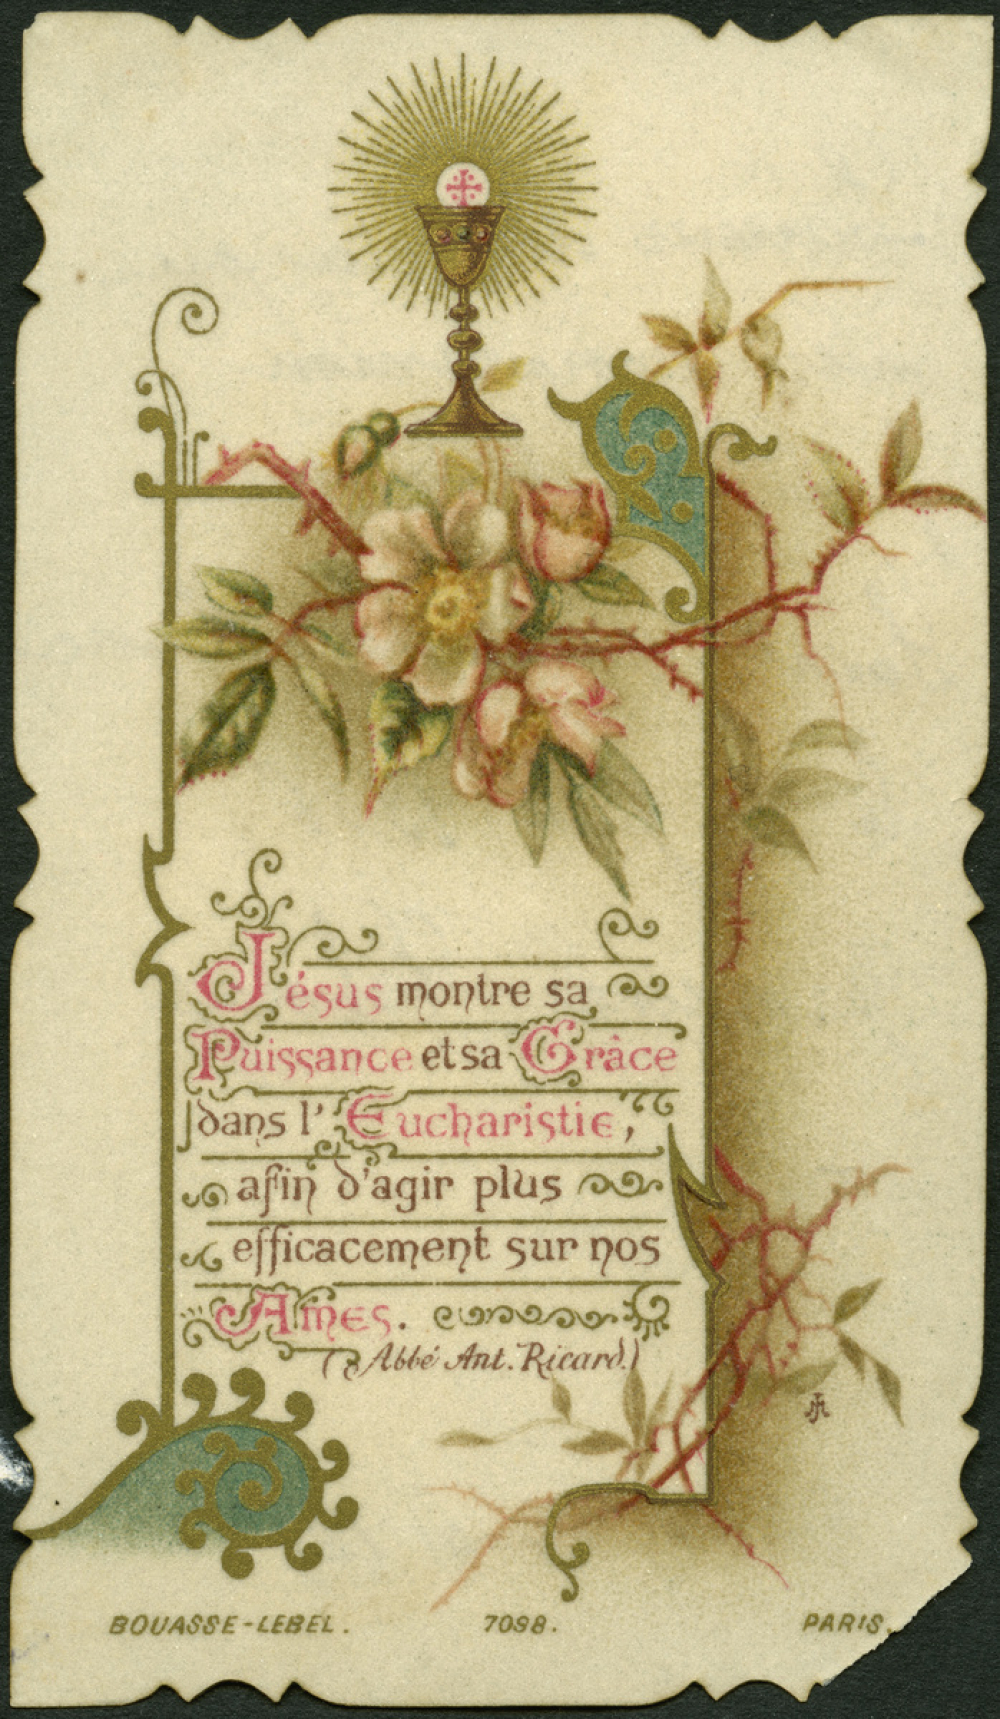 Jésus montre sa
Puissance et sa Grâce
dans l' Eucharistie,
afin d'agir plus
efficacement sur nos
Ames.
(Abbé Ant. Ricard.)
BOUASSE-LEBEL. 7098. PARIS.